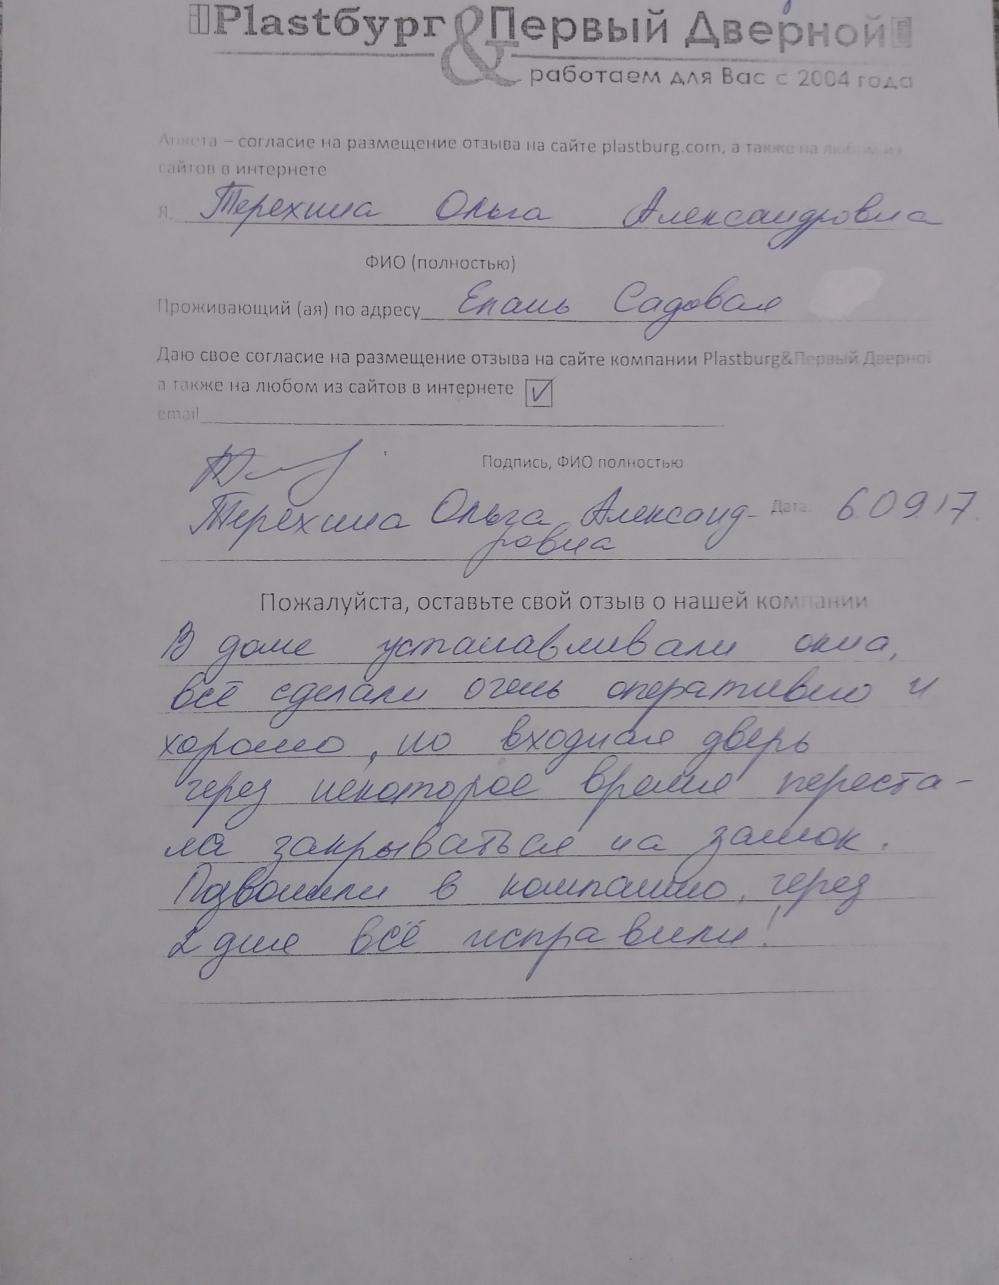 Plastбург & Первый Дверной
работаем для Вас с 2004 года
Анкета – согласие на размещение отзыва на сайте plastburg.com, а также на любом из
сайтов в интернете
Я, Терехина Ольга Александровна
ФИО (полностью)
Проживающий (ая) по адресу Епань Садовая
Даю свое согласие на размещение отзыва на сайте компании Plastburg&Первый Дверной
а также на любом из сайтов в интернете ☑
email
Подпись, ФИО полностью
Терехина Ольга Александ- Дата: 6.09.17
ровна
Пожалуйста, оставьте свой отзыв о нашей компании
В доме устанавливали окна,
всё сделали очень оперативно и
хорошо, но входная дверь
через некоторое время переста-
ла закрываться на замок.
Позвонили в компанию, через
2 дня всё исправили!